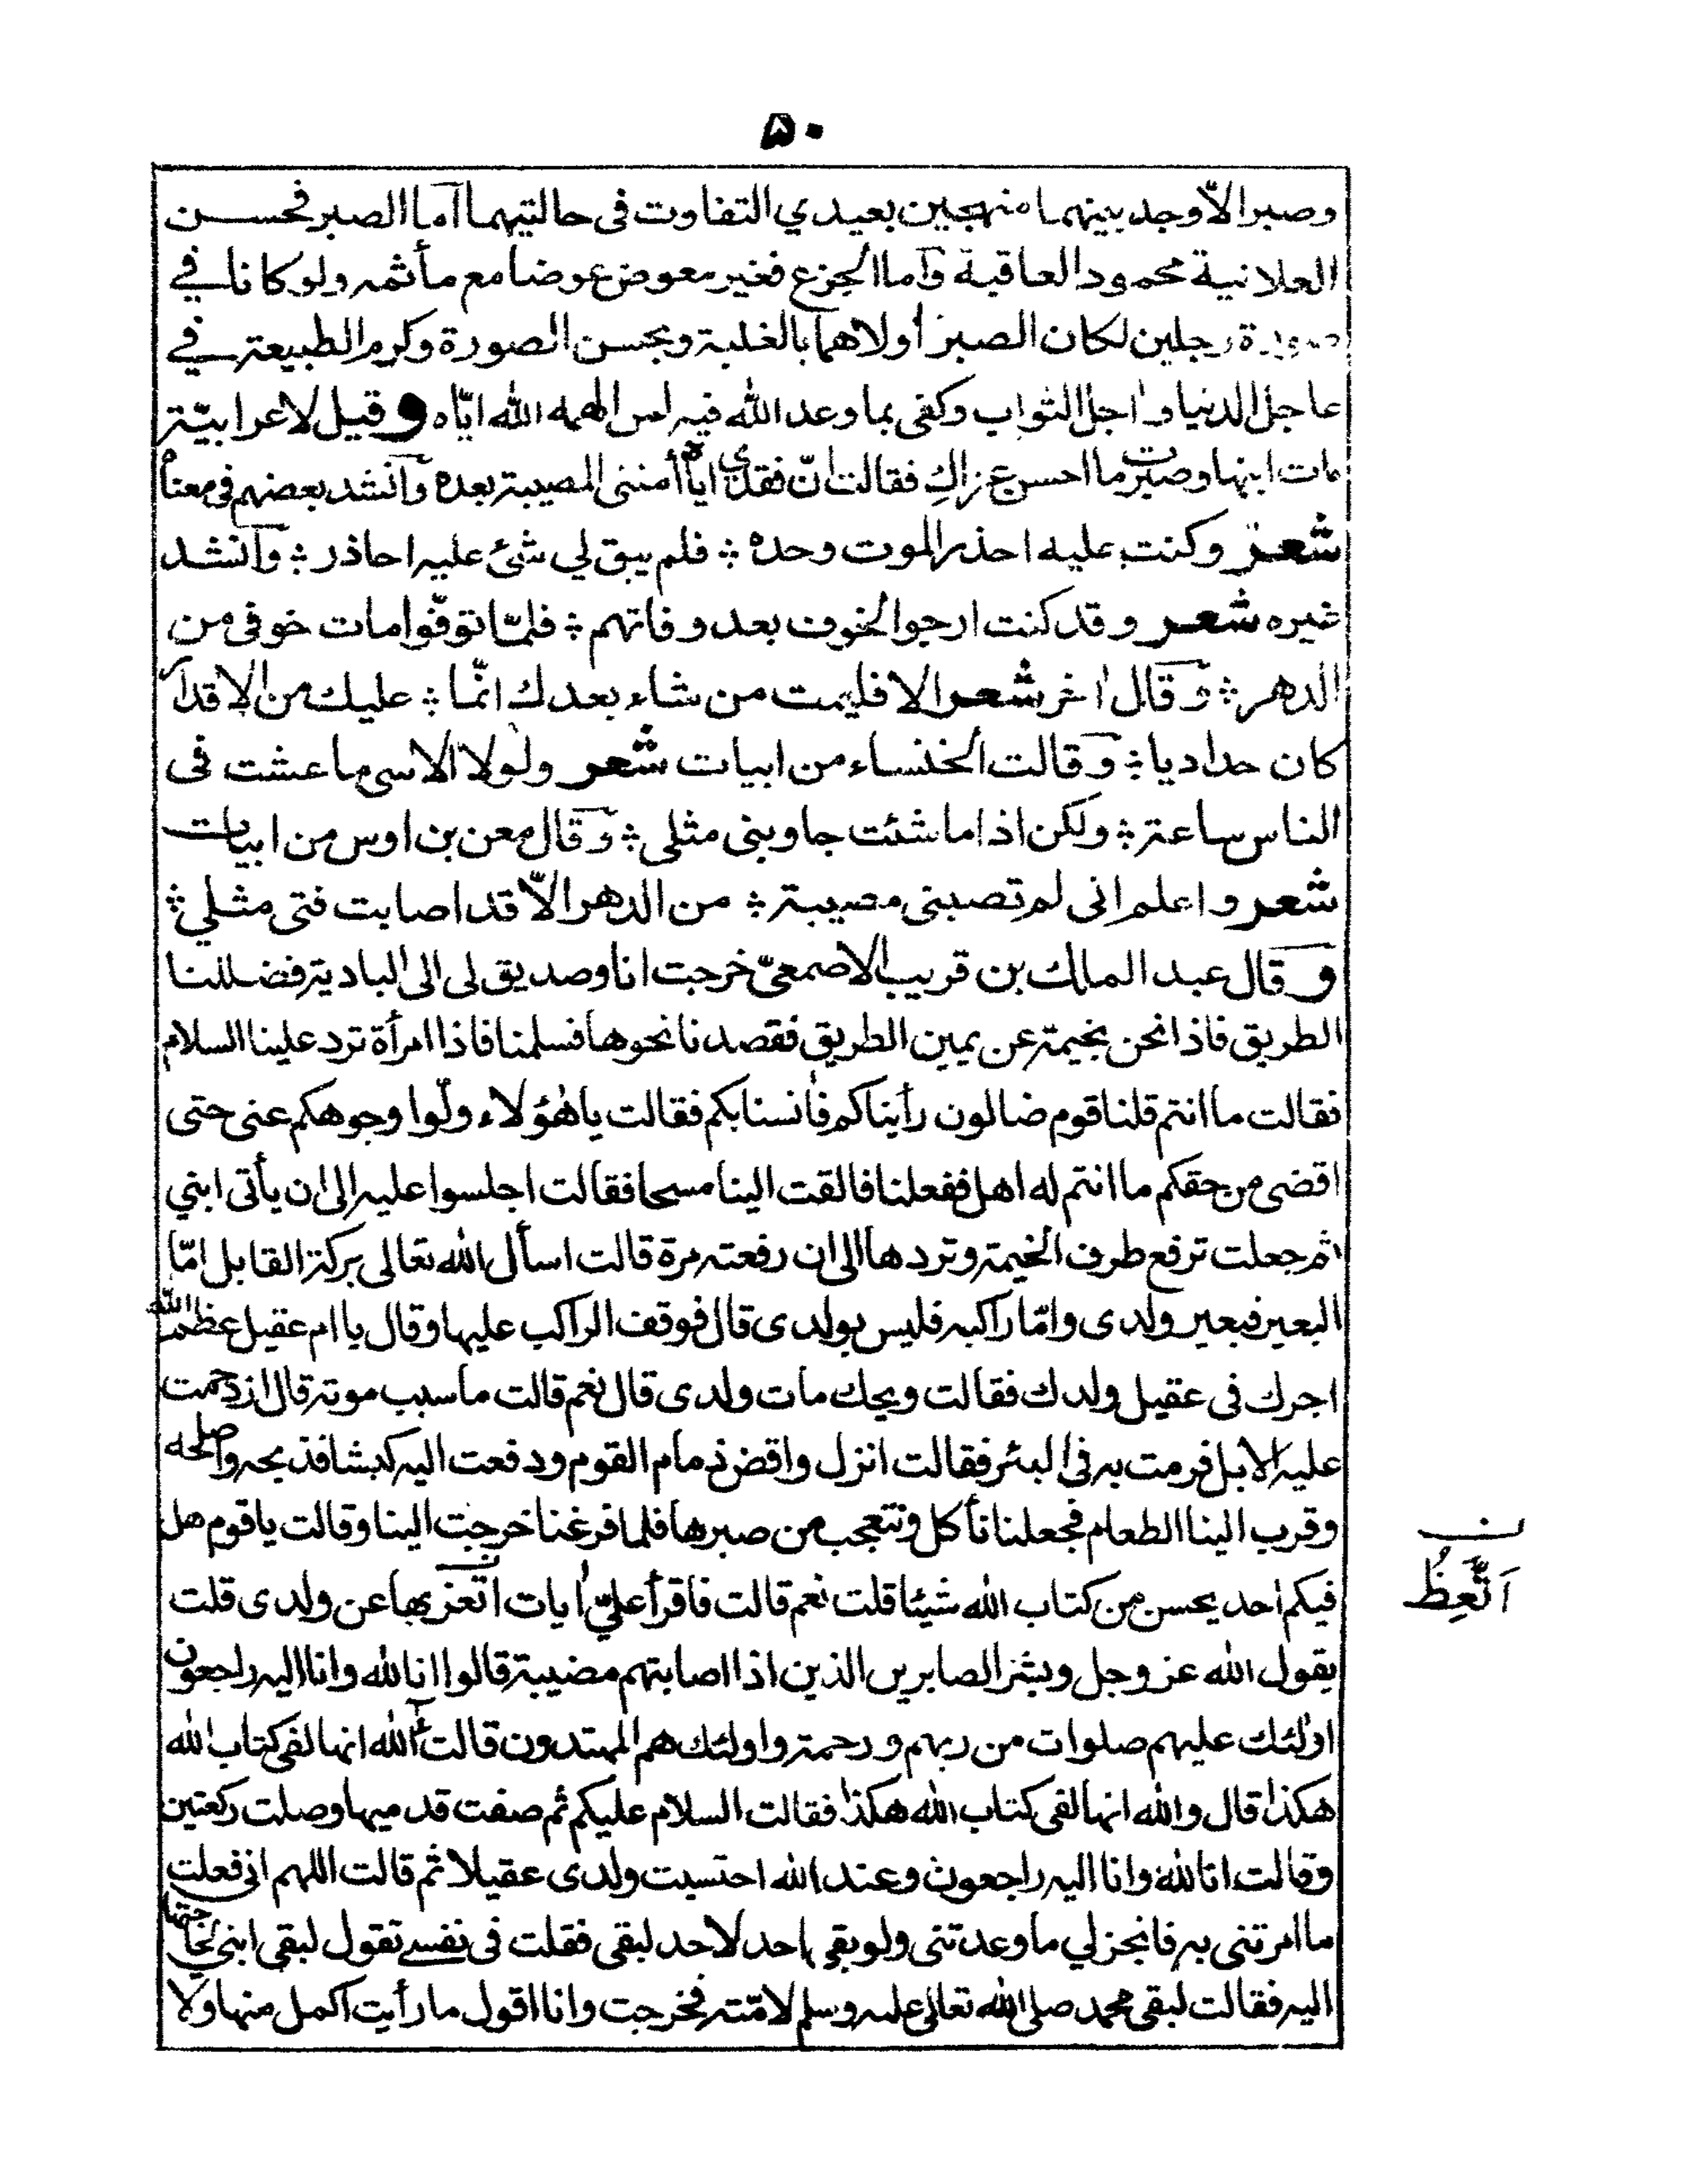 ۵۰
وصبرا الاّ وجد بينهما منهجين بعيدي التفاوت فى حالتيهما اما الصبر فحسن
العلانية محمود العاقبة وآما الجزع فغير معوض عوضا مع مأثمه ولو كانا في
صورة رجلين لكان الصبر أولاهما بالغلبة وبحسن الصورة وكرم الطبيعة في
عاجل الدنيا واجل الثواب وكفى بما وعد الله فيه لمن الهمه الله ايّاه وقيل لاعرابيّة
مات ابنها وصبرت ما احسن عزاك فقالت انّ فقدى اياه أمننى المصيبة بعده وآنشد بعضهم فى معناه
شعر وكنت عليه احذر الموت وحده ؞ فلم يبق لي شئ عليه احاذر ؞ وآنشد
غيره شعر وقد كنت ارجوا لخوف بعد وفاتهم ؞ فلمّا توفّوا مات خوفى من
الدهر ؞ وقال اخر شعر الا فليمت من شاء بعدك انّما ؞ عليك من الاقدار
كان حداديا ؞ وقالت الخنساء من ابيات شعر ولولا الاسى ما عشت فى
الناس ساعة ؞ ولكن اذا ما شئت جاوبنى مثلى ؞ وقال معن بن اوس من ابيات
شعر واعلم انى لم تصبنى مصيبة ؞ من الدهر الاّ قد اصابت فتى مثلي ؞
وقال عبد الملك بن قريب الاصمعىّ خرجت انا وصديق لى الى البادية فضللنا
الطريق فاذا نحن بخيمة عن يمين الطريق فقصدنا نحوها فسلمنا فاذا امرأة ترد علينا السلام
فقالت ما انتم قلنا قوم ضالون رأيناكم فأنسنا بكم فقالت يا هؤلاء ولّوا وجوهكم عنى حتى
اقضى من حقكم ما انتم له اهل ففعلنا فالقت الينا مسحا فقالت اجلسوا عليه الى ان يأتى ابني
ثم جعلت ترفع طرف الخيمة وتردها الى ان رفعته مرة قالت اسأل الله تعالى بركة القابل امّا
البعير فبعير ولدى وامّا راكبه فليس بولدى قال فوقف الراكب عليها وقال يا ام عقيل عظم الله
اجرك فى عقيل ولدك فقالت ويحك مات ولدى قال نعم قالت ما سبب موته قال ازدحمت
عليه الابل فرمت به فى البئر فقالت انزل واقض ذمام القوم ودفعت اليه كبشا فذبحه واصلحه
وقرب الينا الطعام فجعلنا نأكل ونتعجب من صبرها فلما فرغنا خرجت الينا وقالت يا قوم هل
فيكم احد يحسن من كتاب الله شيئا قلت نعم قالت فاقرأ علىّ ايات اتعز بها عن ولدى قلت
يقول الله عز وجل وبشر الصابرين الذين اذا اصابتهم مصيبة قالوا انا لله وانا اليه راجعون
اولئك عليهم صلوات من ربهم ورحمة واولئك هم المهتدون قالت آلله انها لفى كتاب الله
هكذا قال والله انها لفى كتاب الله هكذا فقالت السلام عليكم ثم صفت قدميها وصلت ركعتين
وقالت انا لله وانا اليه راجعون وعند الله احتسبت ولدى عقيلا ثم قالت اللهم انى فعلت
ما امرتنى به فانجز لي ما وعدتنى ولو بقى احد لاحد لبقى فقلت فى نفسے تقول لبقى ابنى لحاجتها
اليه فقالت لبقى محمد صلى الله تعالى عليه وسلم لامّته فخرجت وانا اقول ما رأيت اكمل منها ولا
ن
اَتَّعِظُ